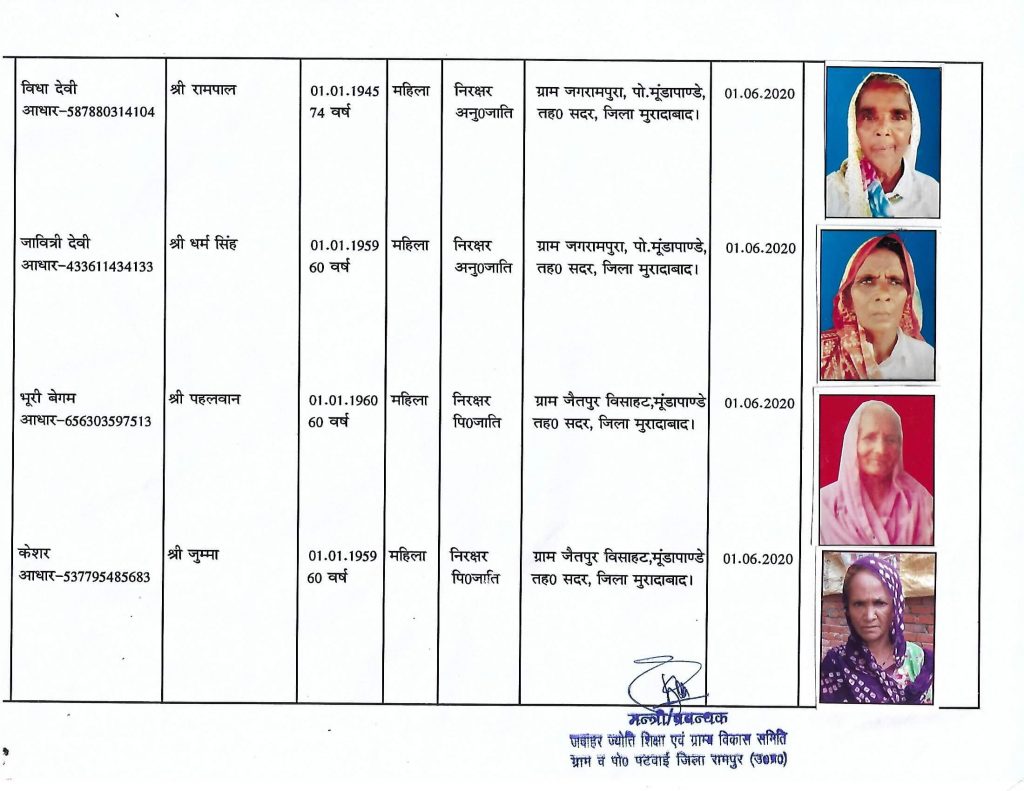 विधा देवी
आधार–587880314104
श्री रामपाल
01.01.1945
74 वर्ष
महिला
निरक्षर
अनु0जाति
ग्राम जगरामपुरा, पो.मूंडापाण्डे,
तह0 सदर, जिला मुरादाबाद।
01.06.2020
जावित्री देवी
आधार–433611434133
श्री धर्म सिंह
01.01.1959
60 वर्ष
महिला
निरक्षर
अनु0जाति
ग्राम जगरामपुरा, पो.मूंडापाण्डे,
तह0 सदर, जिला मुरादाबाद।
01.06.2020
भूरी बेगम
आधार–656303597513
श्री पहलवान
01.01.1960
60 वर्ष
महिला
निरक्षर
पि0जाति
ग्राम जैतपुर विसाहट,मूंडापाण्डे
तह0 सदर, जिला मुरादाबाद।
01.06.2020
केशर
आधार–537795485683
श्री जुम्मा
01.01.1959
60 वर्ष
महिला
निरक्षर
पि0जाति
ग्राम जैतपुर विसाहट,मूंडापाण्डे
तह0 सदर, जिला मुरादाबाद।
01.06.2020
मन्त्री/प्रबन्धक
जवाहर ज्योति शिक्षा एवं ग्राम्य विकास समिति
ग्राम व पो0 पटवाई जिला रामपुर (उ0प्र0)